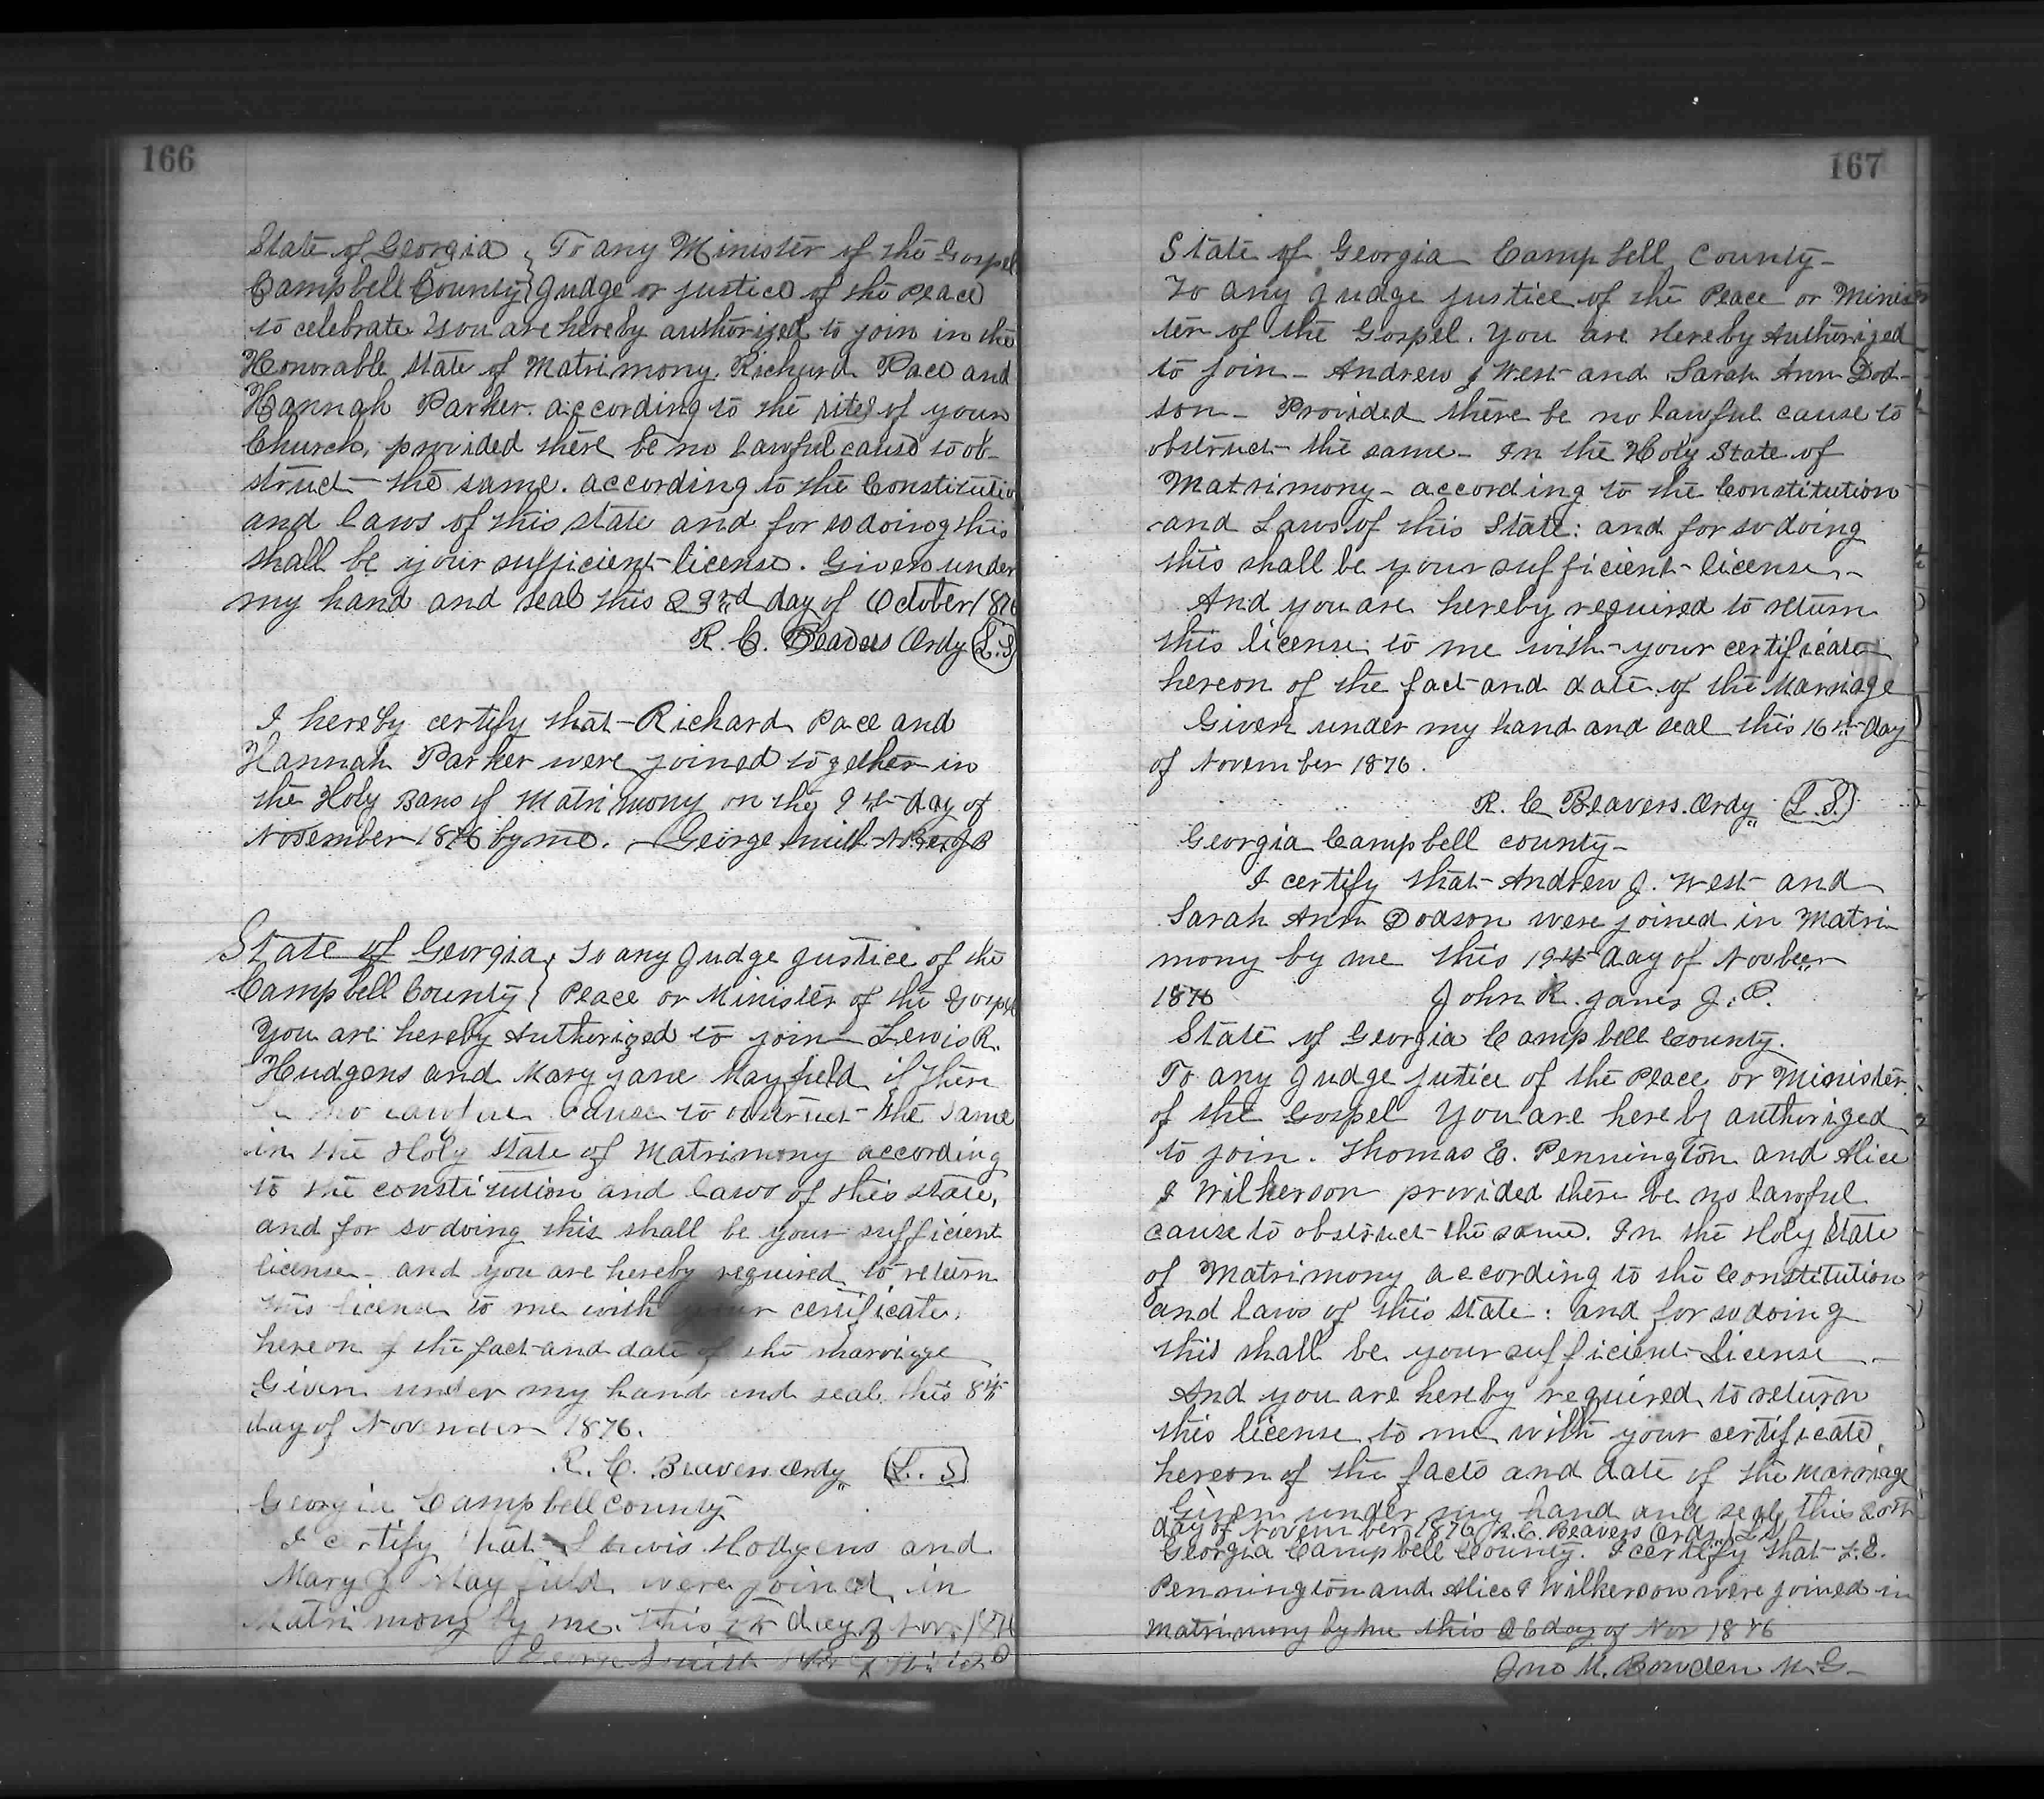 166
State of Georgia } To any Minister of the Gospel
Campbell County } Judge or justice of the Peace
to celebrate You are hereby authorized to join in the
Honorable state of Matrimony. Richard Pace and
Hannah Parker. according to the rites of your
Church, provided there be no lawful cause to ob-
struct the same. according to the Constitutio
and laws of this state and for so doing this
shall be your sufficient license. Given under
my hand and seal this 23rd day of October 187
R. C. Beavers Ordy (L.S)
I hereby certify that Richard Pace and
Hannah Parker were joined together in
the Holy Bans of Matrimony on the 9th day of
November 1876 by me. George Smith
State of Georgia } To any Judge Justice of the
Campbell County } Peace or Minister of the Gospel
You are hereby Authorized to join Lewis R.
Hudgens and Mary Jane Mayfield if there
no lawful cause to obstruct the same
in the Holy State of Matrimony according
to the constitution and laws of this state,
and for so doing this shall be your sufficient
license - and you are hereby required to return
this license to me with your certificate.
hereon of the fact and date of the marriage
Given under my hand and seal this 8th
day of November 1876.
R. C. Beavers Ordy (L. S)
Georgia Campbell County
I certify that Lewis Hodgens and
Mary J Mayfield were joined in
Matrimony by me. this day of Nov. 1876
George Smith
167
State of Georgia Campbell County -
To any Judge justice of the Peace or Minis
ter of the Gospel. You are Hereby Authorized
to join - Andrew J West and Sarah Ann Dod-
son - Provided there be no lawful cause to
obstruct the same - In the Holy State of
Matrimony - according to the Constitution
and Laws of this State: and for so doing
this shall be your sufficient license. -
And you are hereby required to return
this license to me with your certificate
hereon of the fact and date of the Marriage
Given under my hand and seal this 16th day
of November 1876.
R. C Beavers. Ordy (L. S.)
Georgia Campbell county -
I certify that Andrew J. West and
Sarah Ann Dodson were joined in Matri
mony by me this 19th day of Novber
1876 John R. Janes J. P.
State of Georgia Campbell County.
To any Judge jutice of the Peace or Minister
of the Gospel You are hereby authorized
to join. Thomas E. Pennington and Alice
I Wilkerson provided there be no lawful
cause to obstruct the same. In the Holy State
of Matrimony according to the Constitution
and laws of this state: and for so doing
this shall be your sufficient License -
And you are hereby required to return
this license to me with your certificate
hereon of the facts and date of the marriage
Given under my hand and seal this 20th
day of November 1876 R. C. Beavers Ordy (L.S)
Georgia Campbell County. I certify that T. E.
Pennington and Alice I Wilkerson were joined in
Matrimony by me this 26 day of Nov 1876
Jno M. Bowden M. G -